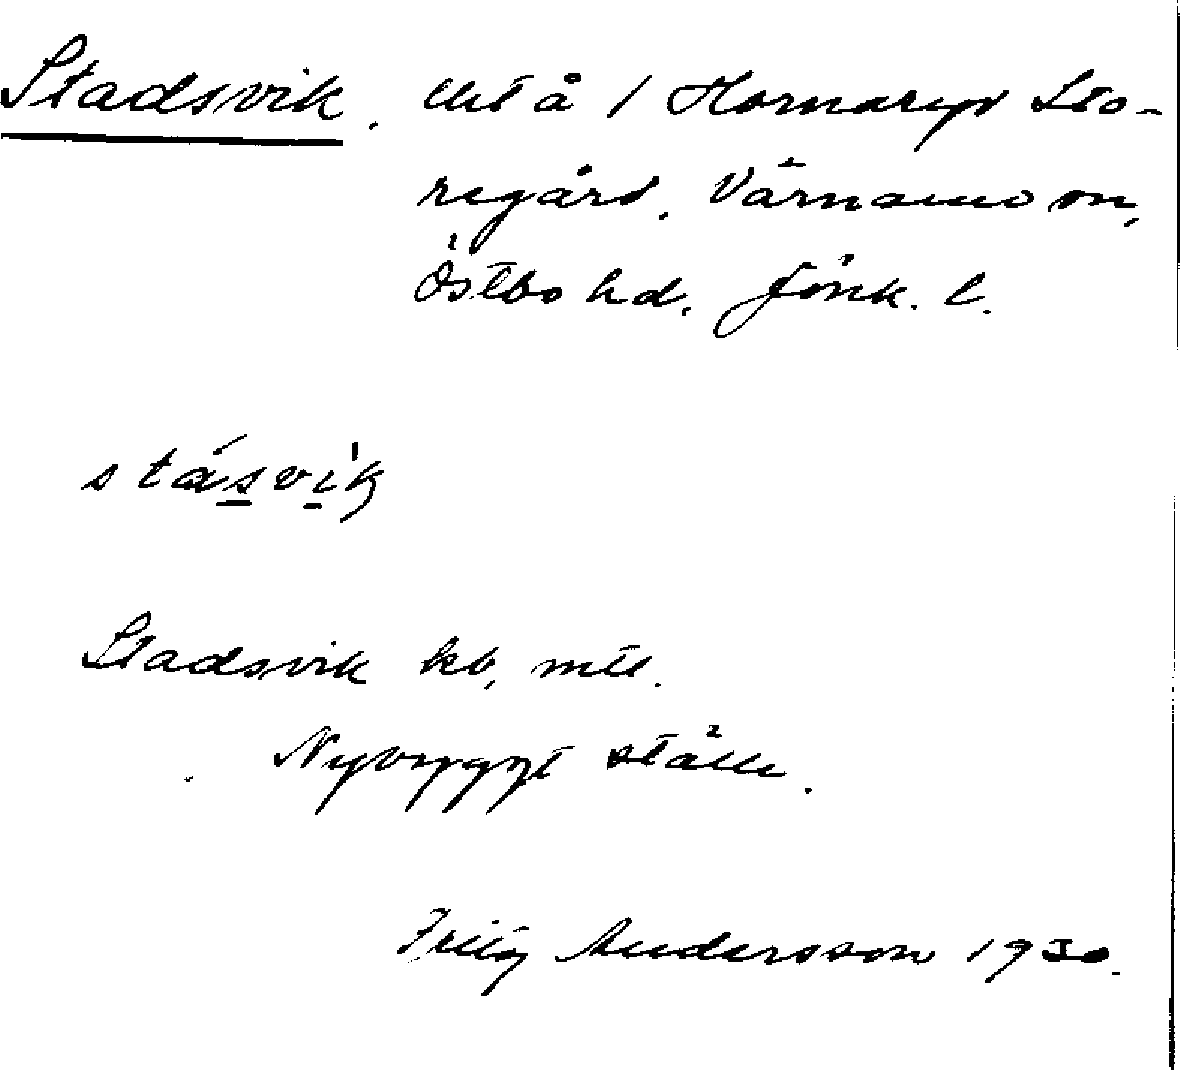 Stadsvik. Utå / Hornaryd Sto-
regård, Värnamo sn,
Östbo hd. Jönk. l.
stásvik
Stadsvik kb, mtl.
Nybyggt ställe.
Fritz Andersson 1930.